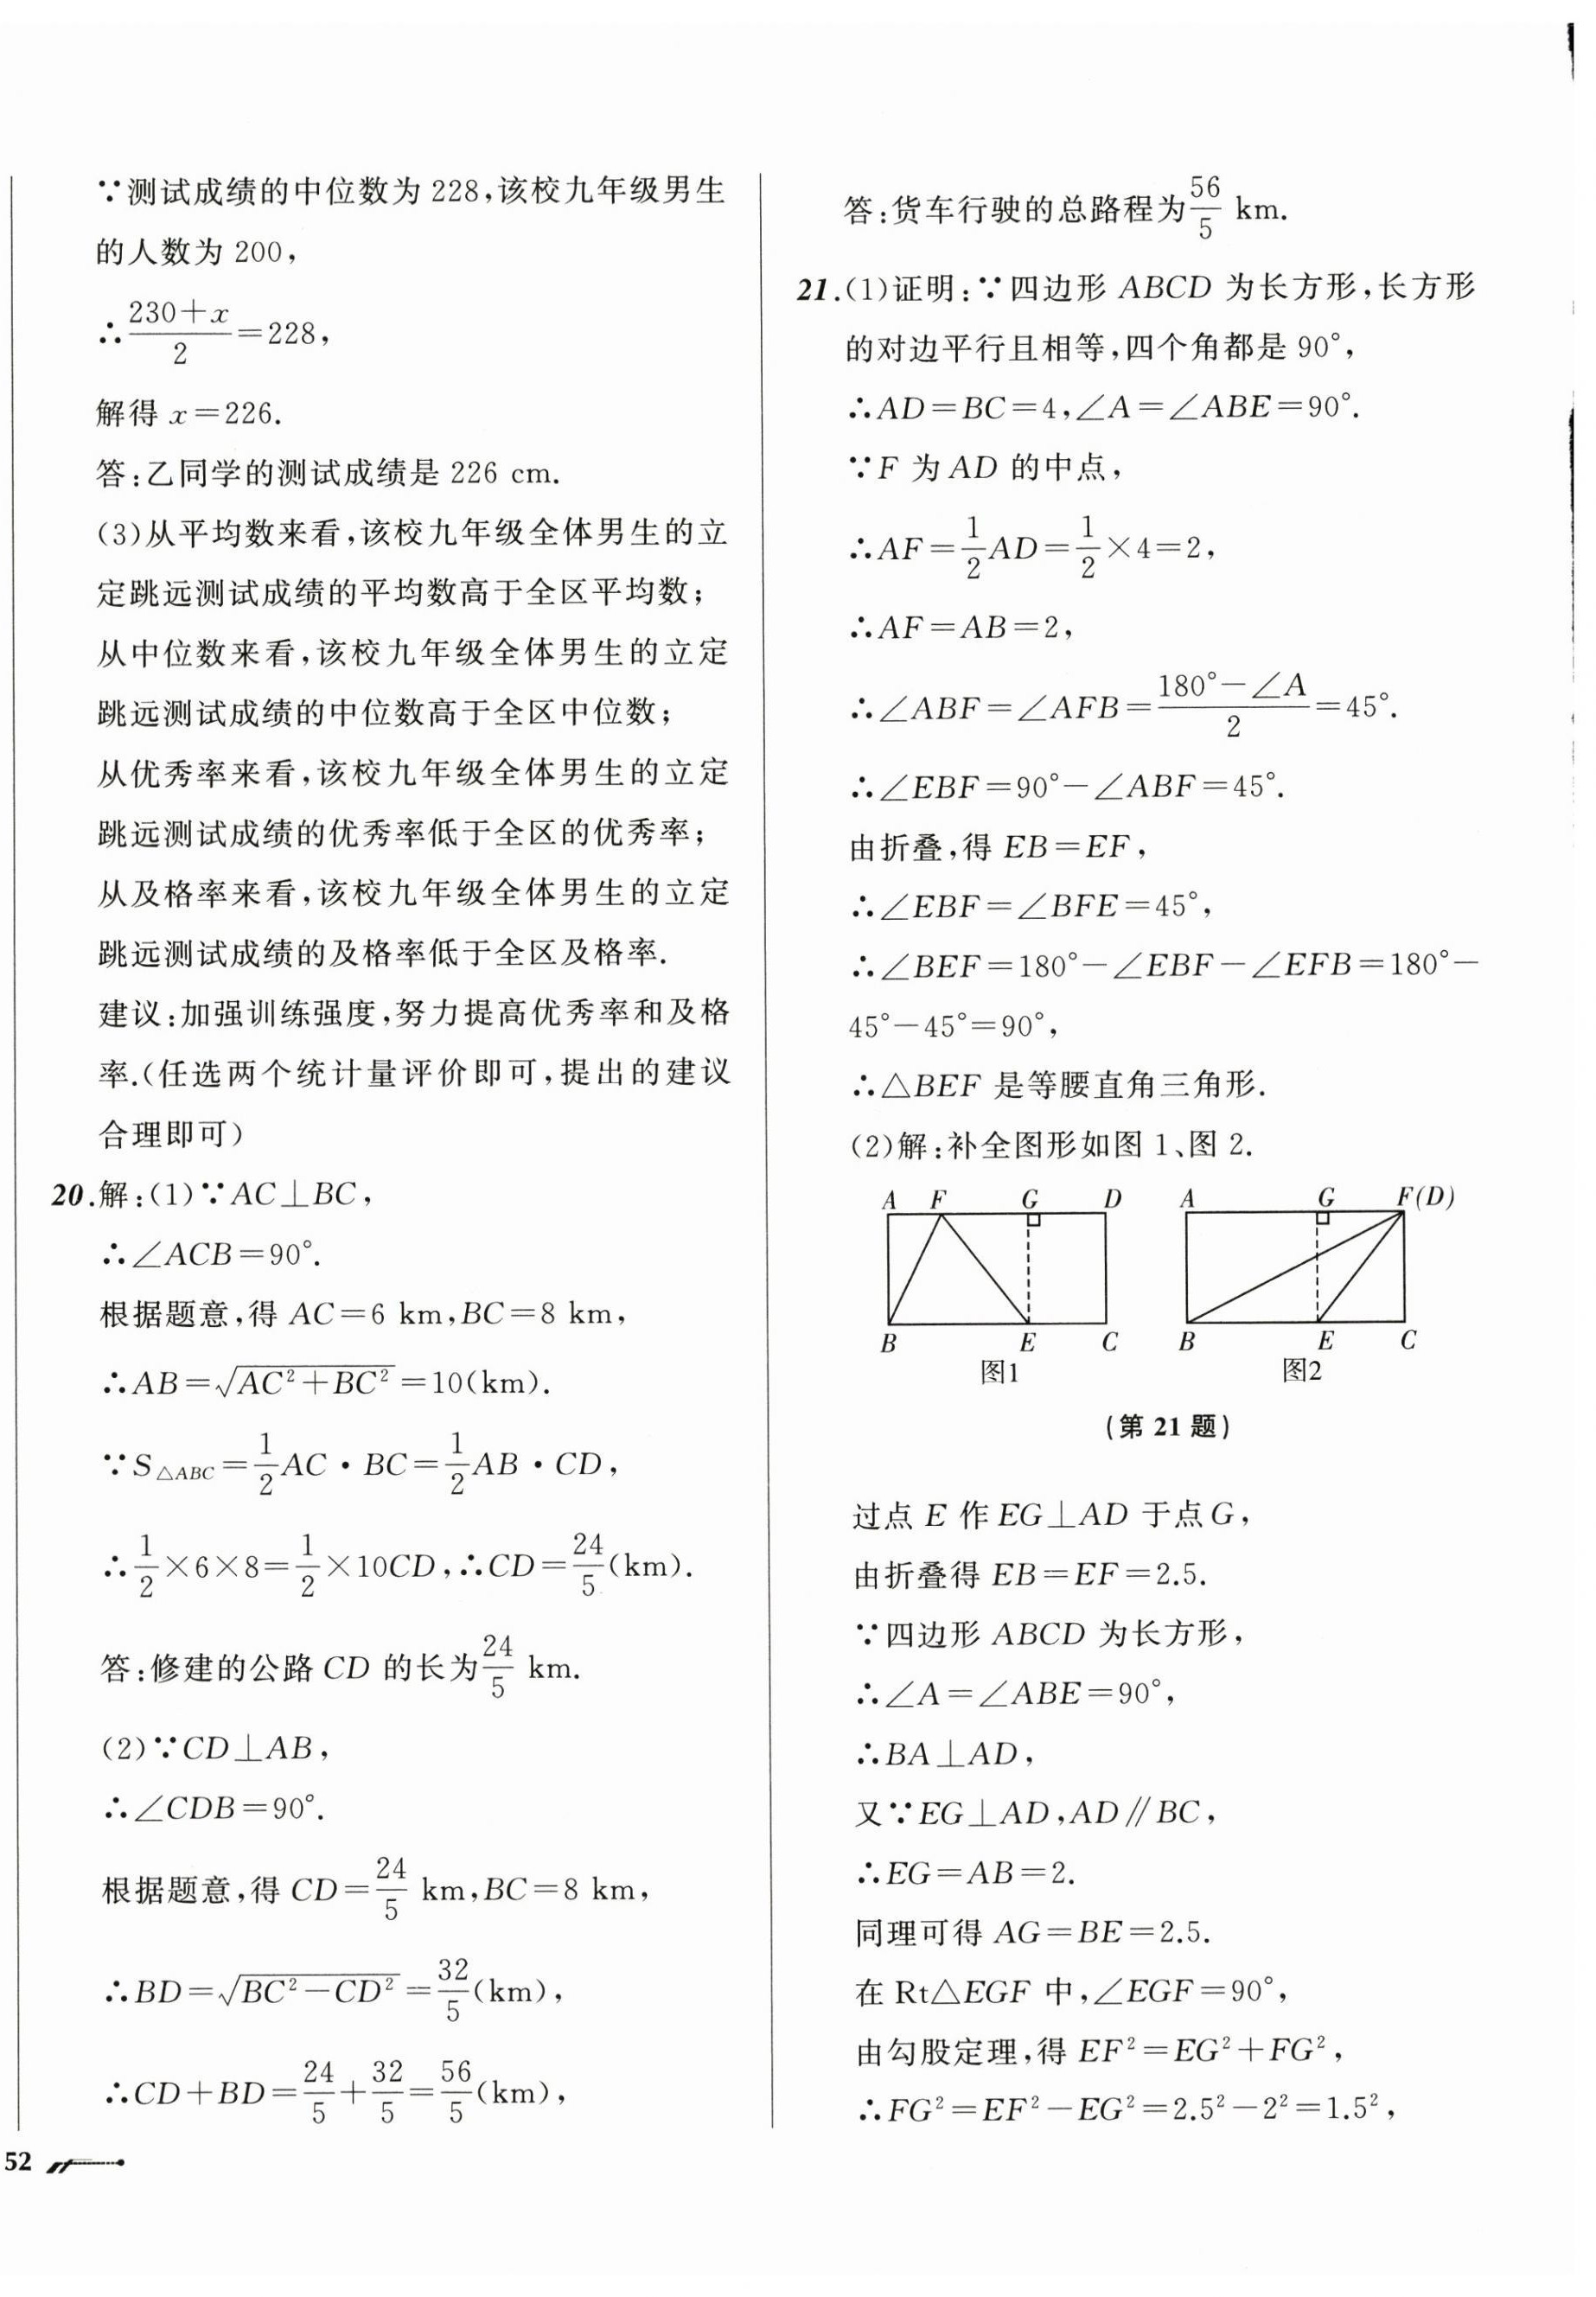 ∵测试成绩的中位数为 228,该校九年级男生
的人数为 200,
∴(230+x)/2=228,
解得 x=226.
答:乙同学的测试成绩是 226 cm.
(3)从平均数来看,该校九年级全体男生的立
定跳远测试成绩的平均数高于全区平均数;
从中位数来看,该校九年级全体男生的立定
跳远测试成绩的中位数高于全区中位数;
从优秀率来看,该校九年级全体男生的立定
跳远测试成绩的优秀率低于全区的优秀率;
从及格率来看,该校九年级全体男生的立定
跳远测试成绩的及格率低于全区及格率.
建议:加强训练强度,努力提高优秀率和及格
率.(任选两个统计量评价即可,提出的建议
合理即可)
20.解:(1)∵AC⊥BC,
∴∠ACB=90°.
根据题意,得 AC=6 km,BC=8 km,
∴AB=√(AC²+BC²)=10(km).
∵S△ABC=1/2AC·BC=1/2AB·CD,
∴1/2×6×8=1/2×10CD,∴CD=24/5(km).
答:修建的公路 CD 的长为24/5 km.
(2)∵CD⊥AB,
∴∠CDB=90°.
根据题意,得 CD=24/5 km,BC=8 km,
∴BD=√(BC²-CD²)=32/5(km),
∴CD+BD=24/5+32/5=56/5(km),
52
答:货车行驶的总路程为56/5 km.
21.(1)证明:∵四边形 ABCD 为长方形,长方形
的对边平行且相等,四个角都是 90°,
∴AD=BC=4,∠A=∠ABE=90°.
∵F 为 AD 的中点,
∴AF=1/2AD=1/2×4=2,
∴AF=AB=2,
∴∠ABF=∠AFB=(180°-∠A)/2=45°.
∴∠EBF=90°-∠ABF=45°.
由折叠,得 EB=EF,
∴∠EBF=∠BFE=45°,
∴∠BEF=180°-∠EBF-∠EFB=180°-
45°-45°=90°,
∴△BEF 是等腰直角三角形.
(2)解:补全图形如图 1、图 2.
A F G D A G F(D)
B E C B E C
图1 图2
(第 21 题)
过点 E 作 EG⊥AD 于点 G,
由折叠得 EB=EF=2.5.
∵四边形 ABCD 为长方形,
∴∠A=∠ABE=90°,
∴BA⊥AD,
又∵EG⊥AD,AD∥BC,
∴EG=AB=2.
同理可得 AG=BE=2.5.
在 Rt△EGF 中,∠EGF=90°,
由勾股定理,得 EF²=EG²+FG²,
∴FG²=EF²-EG²=2.5²-2²=1.5²,